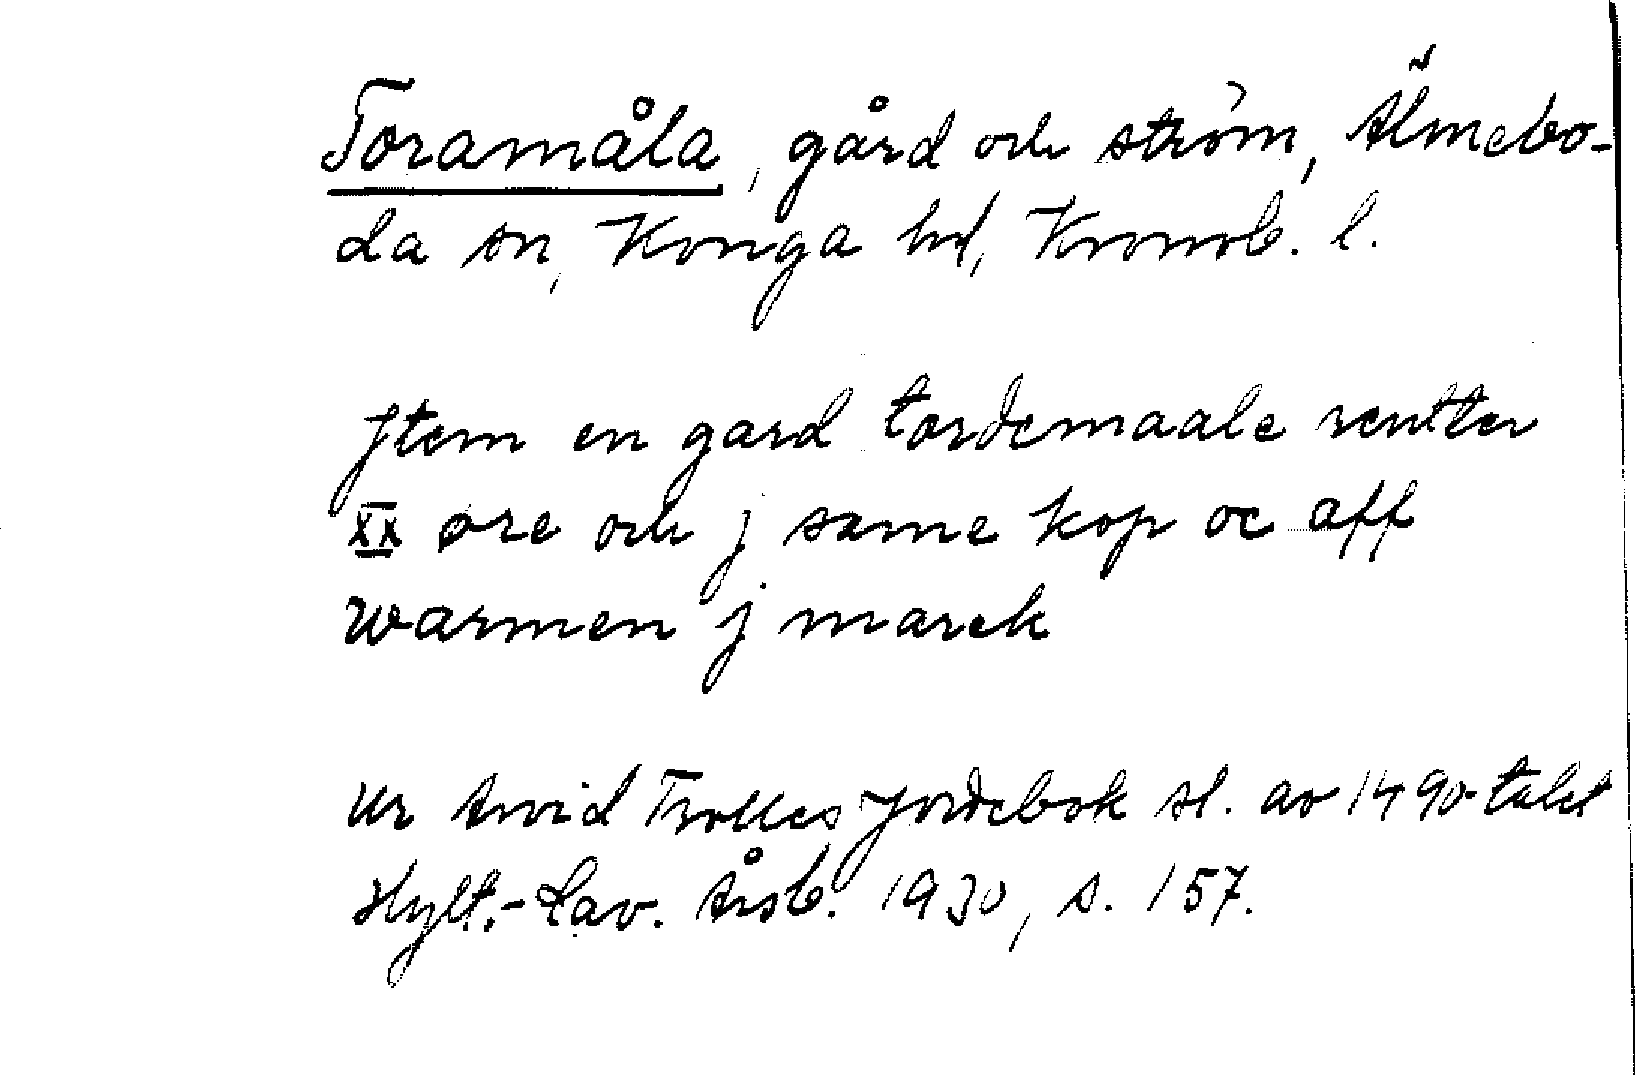 Toramåla, gård och ström, Älmebo-
da sn, Konga hd, Kronob. l.
Jtem en gard tordemaale rentter
xx øre och j same kop oc aff
warmen j marck
Ur Arvid Trolles Jordebok sl. av 1490-talet
Hylt.-Cav. Årsb. 1930, s. 157.